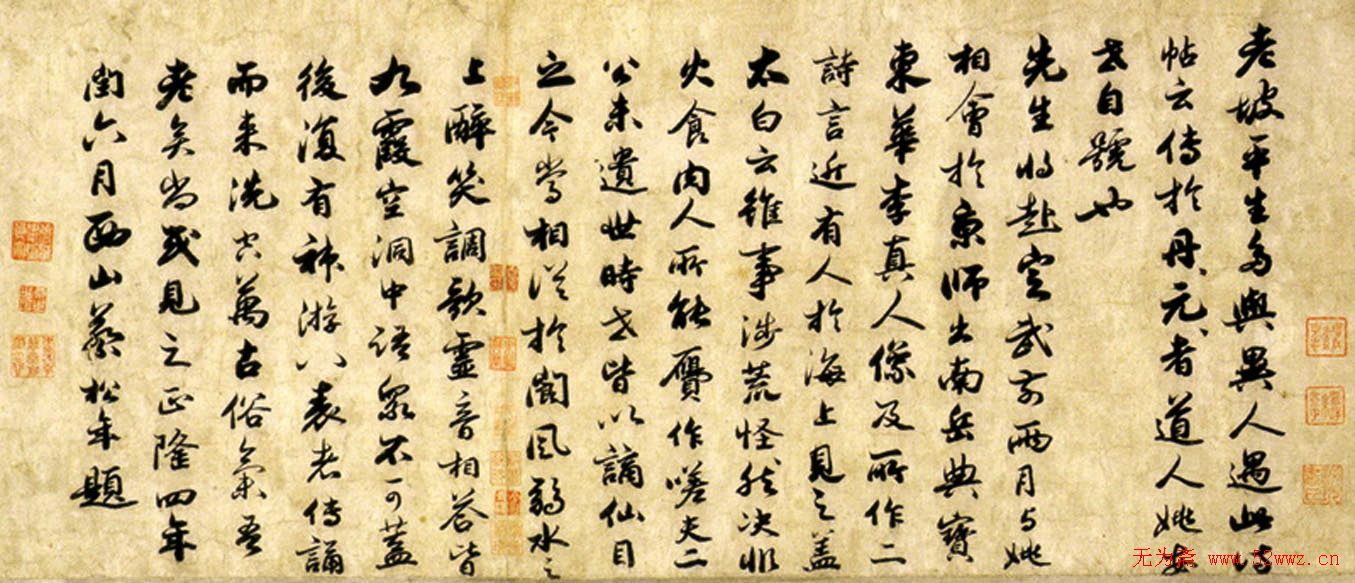 老坡平生多與異人遇此詩
帖云傳於丹元者道人姚安
世自號也
先生將赴定武前兩月与姚
相會於京師出南岳典寶
東華李真人像及所作二
詩言近有人於海上見之蓋
太白云雖事涉荒怪然決非
火食肉人所能贗作嗟夫二
公未遺世時世皆以謫仙目
之今當相從於閬風弱水之
上醉笑調歌靈音相答皆
九霞空洞中語衆不可蓋
後復有神游八表者傳誦
而来洗空萬古俗氣吾
老矣尚或見之正隆四年
閏六月西山蔡松年題
无为斋 www.52wwz.cn